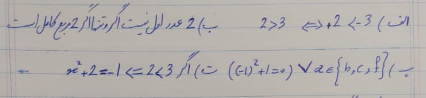 الف) 2>3 ⇔ +2<-3 ب) 2 عدد اول نیست اگر و تنها اگر 2 مربع کامل است
پ) ((-1)²+1=0) ∨ a∈{b,c,f} ت) اگر 2<3 => x²+2=-1